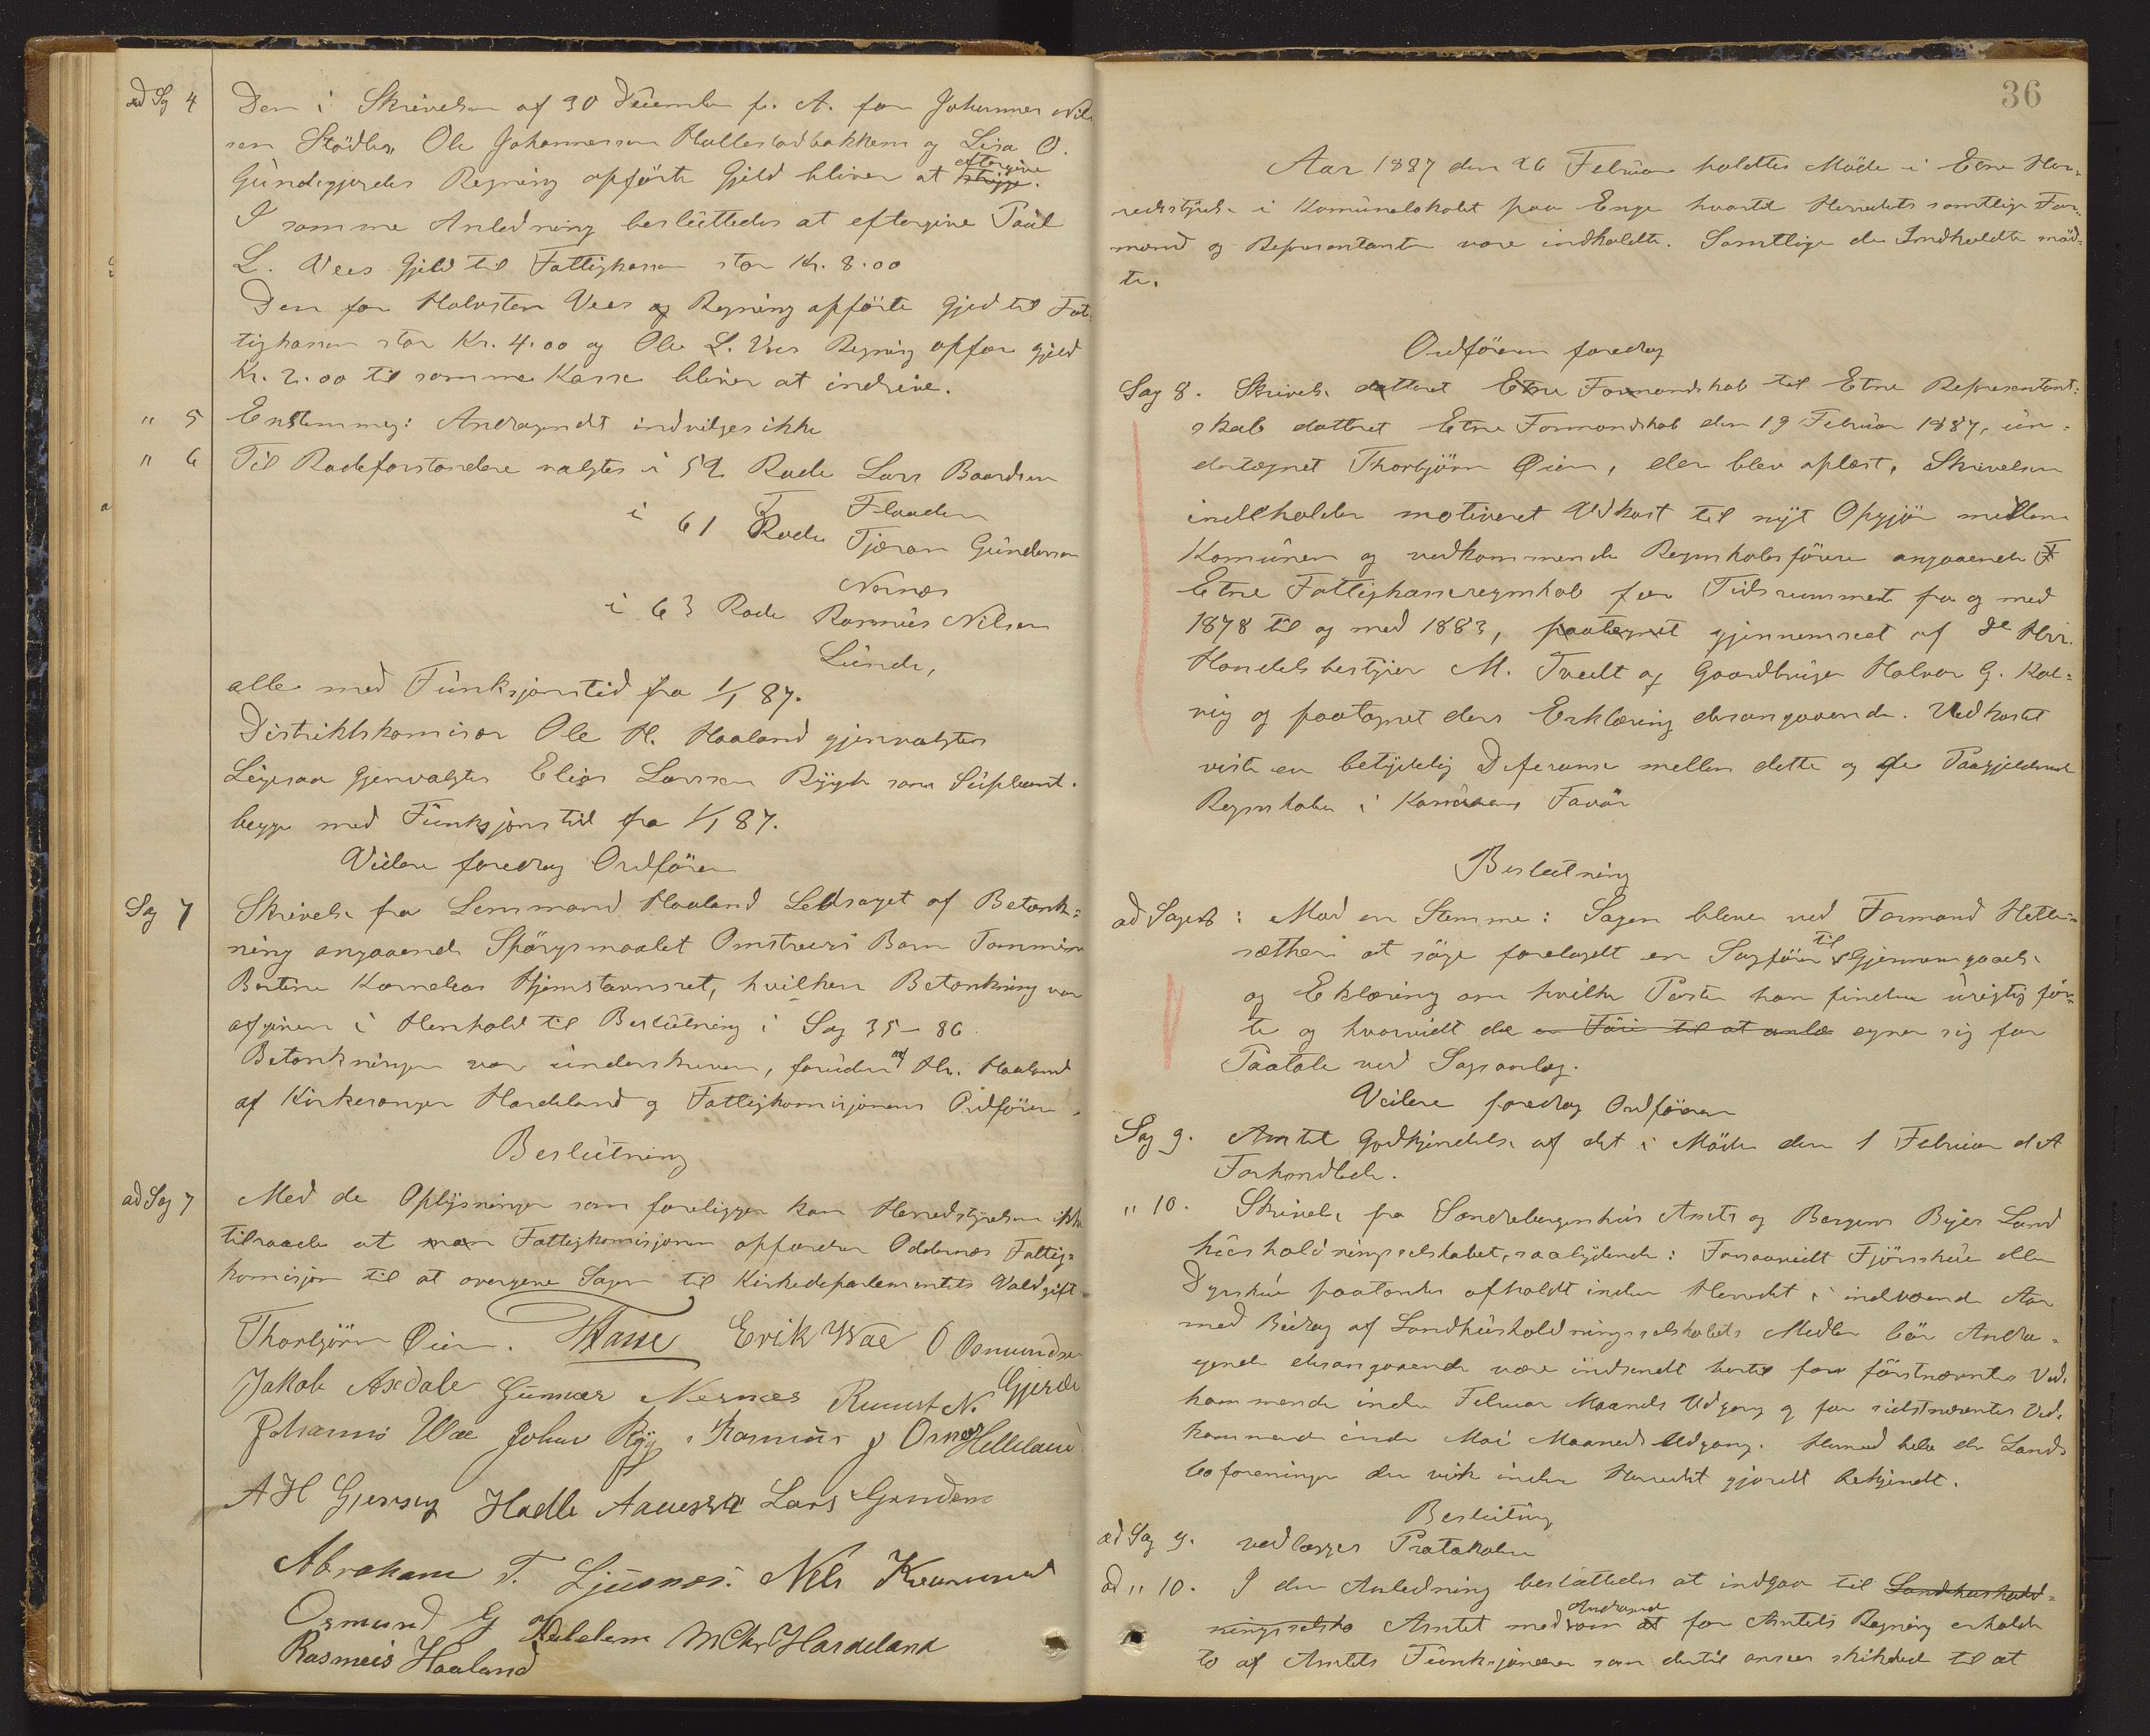 ad Sg 4 Den i Skrivelsen af 30 December f. A. for Johannes Nil-
sen Stödle, Ole Johannessen Hallesbadbakkens og Lisa O.
Gundegjerdes Regning opførte Gjeld bliver at eftergive.
I samme Anledning besluttedes at eftergive Paul
L. Vees Gjeld til Fattigkassen stor Kr. 8.00
Den for Halvsten Vees Regning opförte Gjeld til Fat-
tigkassen stor Kr. 4.00 og Ole L. Vees Regning opför gjeld
Kr. 2.00 til samme Kasse bliver at indrive.
" 5 Enstemmig: Andragendet indvilges ikke
" 6 Til Rodeforstandere valgtes i 59 Rode Lars Baardsen
Flaaden
i 61 Rode Tjæran Gundersen
Nernæs
i 63 Rode Rasmus Nilsen
Lunde,
alle med Funksjonstid fra 1/1 87.
Distriktskomisær Ole H. Haaland gjenvalgtes
Ligesaa Gjenvalgtes Elias Larssen Rygh som Supleant.
begge med Funksjonstid fra 1/1 87.
Videre foredrog Ordfören
Sag 7 Skrivelse fra Lensmand Haaland Ledsaget af Betænk-
ning angaaende Spörgsmaalet Omstreiferi Barn Tommine
Bertine Korneleas Hjemstavnsret, hvilken Betænkning var
afgiven i Henhold til Beslutning i Sag 35-86.
Betænkningen var underskreven, foruden af Hr. Haaland
af Kirkesanger Hardeland og Fattigkomisjonens Ordförer.
Beslutning
ad Sag 7 Med de Oplysninger som foreligger kan Herredstyrelsen ikke
tilraade at man Fattigkomisjonen opfordrer Oddernæs Fattig-
komisjon til at overgive Sagen til Kirkedepartementets Voldgift.
Thorbjörn Øien. Erik Vae O Osmundsen
Gjerde
Jakob Axdale Gunnar Nernæs Knut N.
Johannes Vae Johan Ryg Rasmus J Osnes Hellelane
A H Gjersvig Hadle Lars Grindem
Abraham T. Ljusnes. Nils Kvammed
Osmund G Milelem M Chr Hardeland
Rasmus Haaland
36
Aar 1887 den 26 Februar holdtes Möde i Etne Her-
redsstyrelse i Komunelokalet paa Enge hvortil Herredets samtlige For-
mænd og Representanter vare indkaldte. Samtlige de Indkaldte möd-
te.
Ordföreren foredrog
Sag 8. Skrivelse dattert Etne Formandskab til Etne Representant-
skab dattert Etne Formandskab den 19 Februar 1887, un-
dertegnet Thorbjörn Øien, den blev oplæst. Skrivelsen
indeholder motiveret Udkast til nyt Opgjör mellem
Komunen og vedkommende Regnskabsförere angaaende F
Etne Fattigkasseregnskab for Tidsrummet fra og med
1878 til og med 1883, paategnet gjennemseet af de Hrr.
Handelsbestyrer M. Tvedt og Gaardbruger Halvor G. Kal-
vig og paategnet ders Erklæring desangaaende. Udkastet
viste en betydelig Diferanse mellem dette og de Paagjeldende
Regnskaber i Komunens Favör
Beslutning
ad Sag 8: Mod en Stemme: Sagen bliver ved Formand Hetle-
sæther at söge forelagdt en Sagförer til Gjennemgaaelse
og Eklæring om hvilke Poster han finder urigtig för-
te og hvorvidt de er Föie til at anlæ egner sig for
Paatale ved Sagsanlæg.
Videre foredrog Ordföreren
Sag 9. Amtet Godkjendelse af det i Möde den 1 Februar d A
Forhandlede.
" 10. Skrivelse fra Söndrebergenhus Amts og Bergens Byes Land
husholdningsselskabet, saalydende: Forsaavidt Fjörskue eller
Dyrskue paatænkes afholdt inden Herredet i indværende Aar
med Bidrag af Landhusholdningsselskabets Midler bör Andra-
gende desangaaende være indsendt hertil for förstnævntes Ved-
kommende inden Februar Maaneds Udgang og for sidstnævntes Ved-
kommende inden Mai Maaneds Udgang. Hermed bedes de Landb-
boforeninger der virke inden Herredet gjordt bekjendt.
Beslutning
ad Sag 9. vedlægges Protokolen
ad " 10. I den Anledning besluttedes at indgaa til Landhushold-
ningsselska Amtet med Andragende om at for Amtets Regning erholde
to af Amtets Funksjonærer som dertil ansees skikked til at